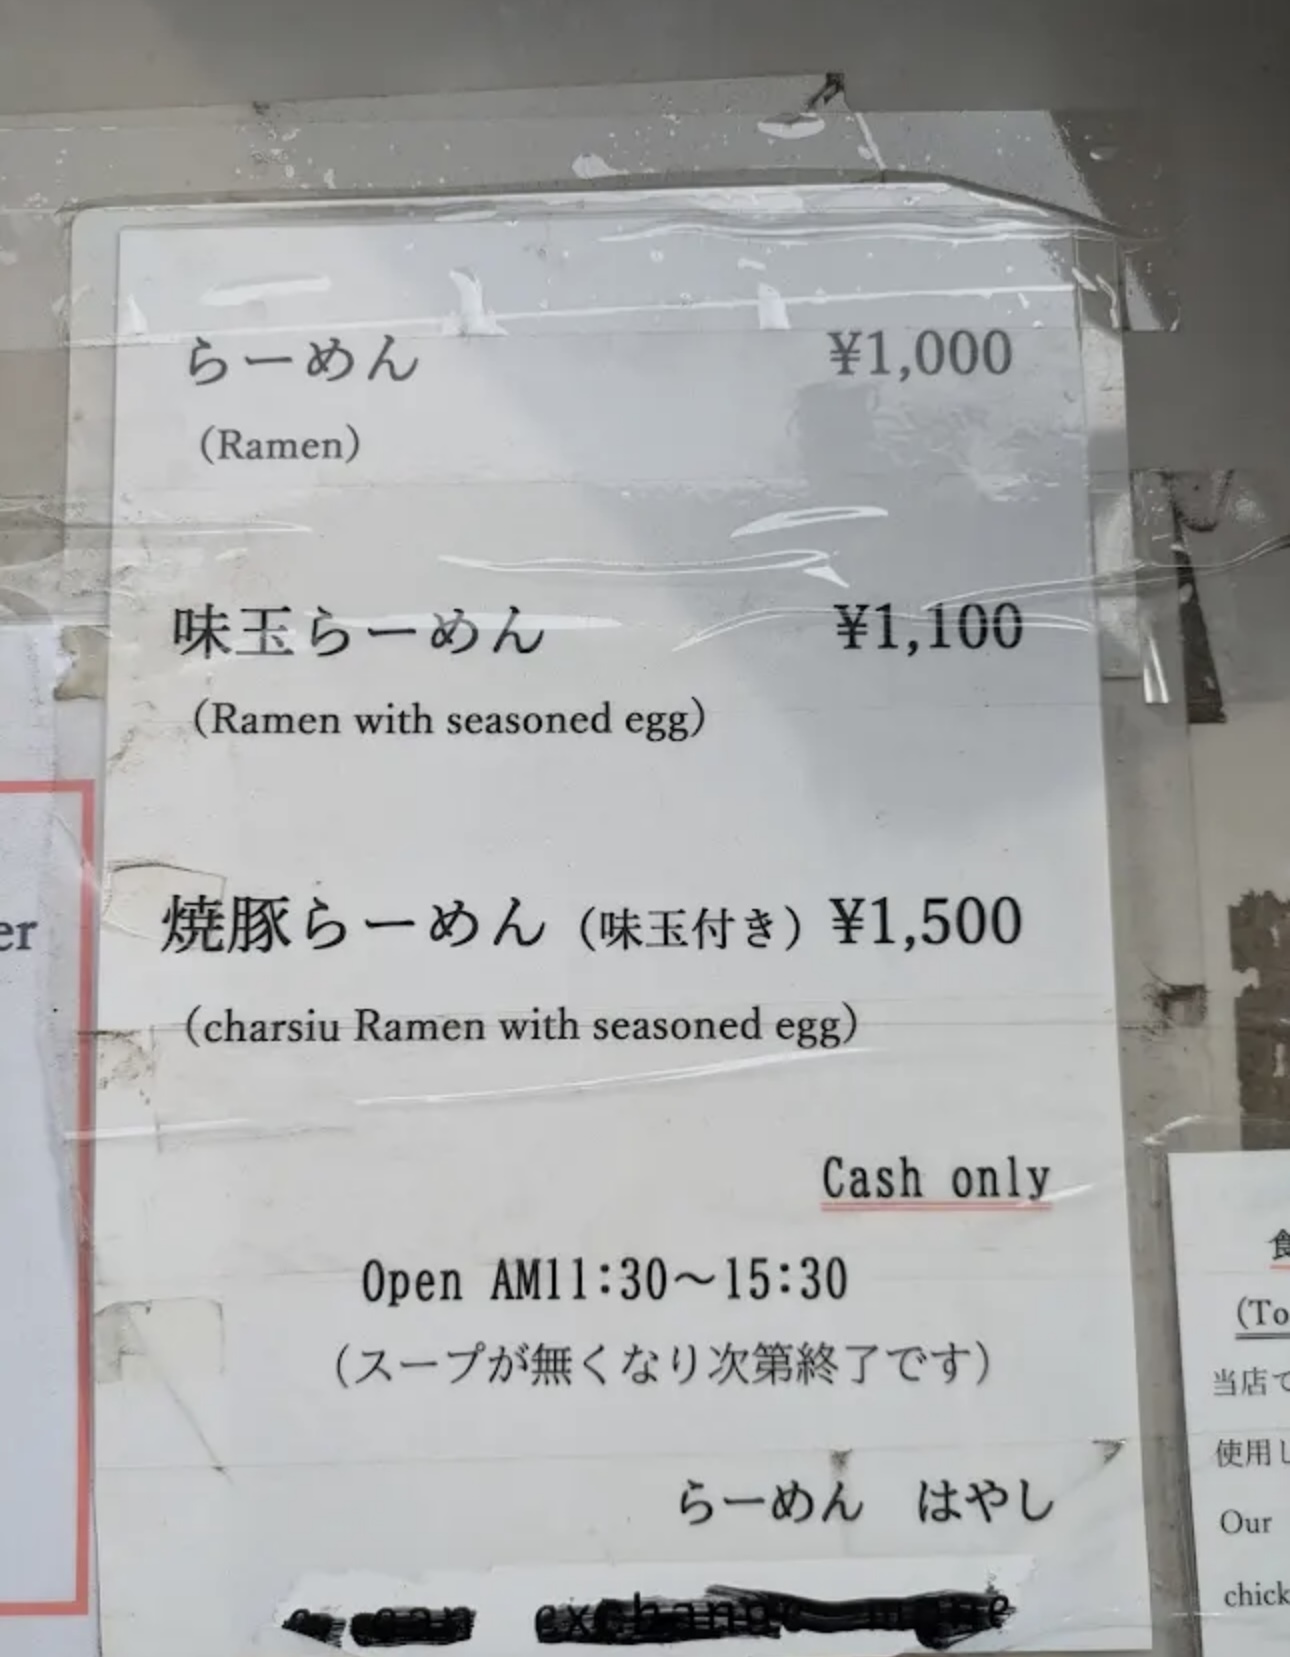 らーめん ¥1,000
(Ramen)
味玉らーめん ¥1,100
(Ramen with seasoned egg)
焼豚らーめん（味玉付き）¥1,500
(charsiu Ramen with seasoned egg)
Cash only
Open AM11:30～15:30
（スープが無くなり次第終了です）
らーめん はやし
exchange
er
(To
当店で
使用し
Our
chick